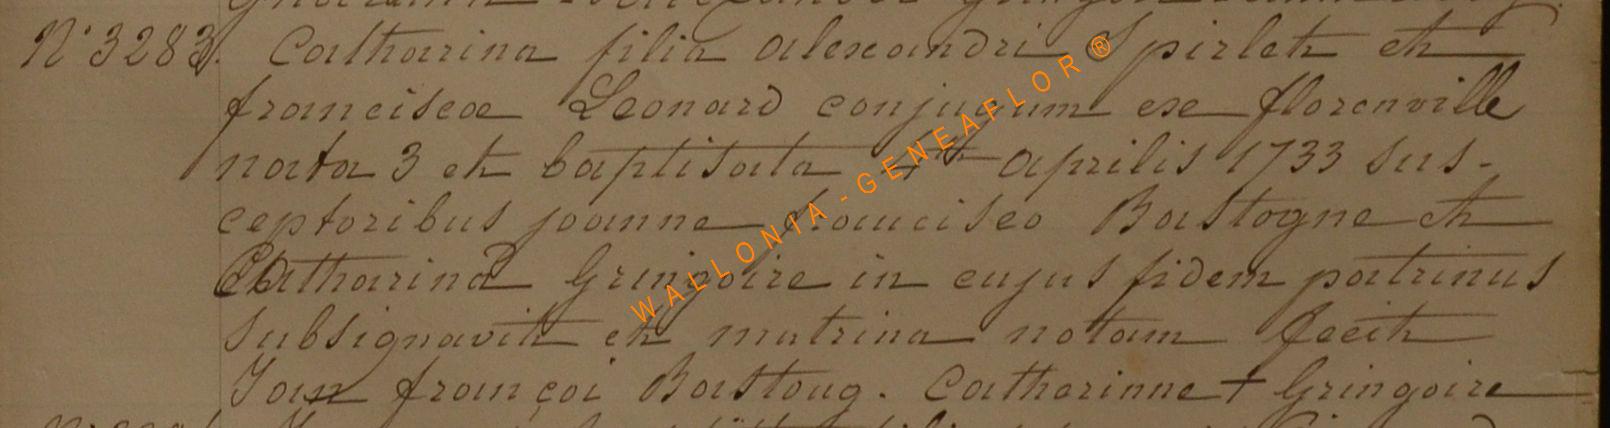 N° 3283. Catharina filia alexandri Spirlet et
franciscae Leonard conjugum ex florenville
nata 3 et baptisata 4ta aprilis 1733 sus-
ceptoribus joanne francisco Bastogne et
Catharina Gringoire in cujus fidem patrinus
subsignavit et matrina notam fecit
Jan françoi Bastoug. Catherinne + Gringoire
WALLONIA-GENEAFLOR®